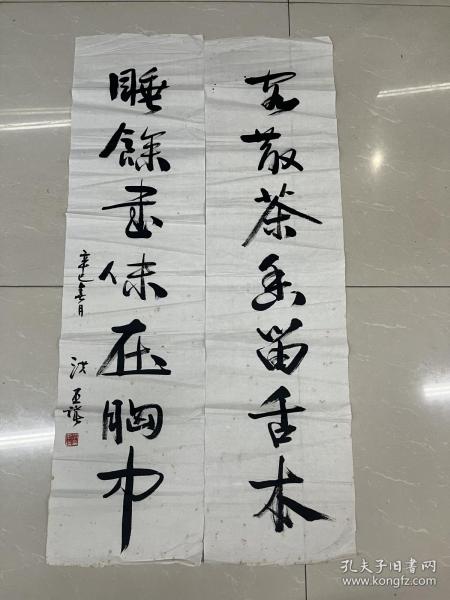 客散茶香留舌本
睡餘書味在胸中
辛巳春月
孔夫子旧书网
www.kongfz.com